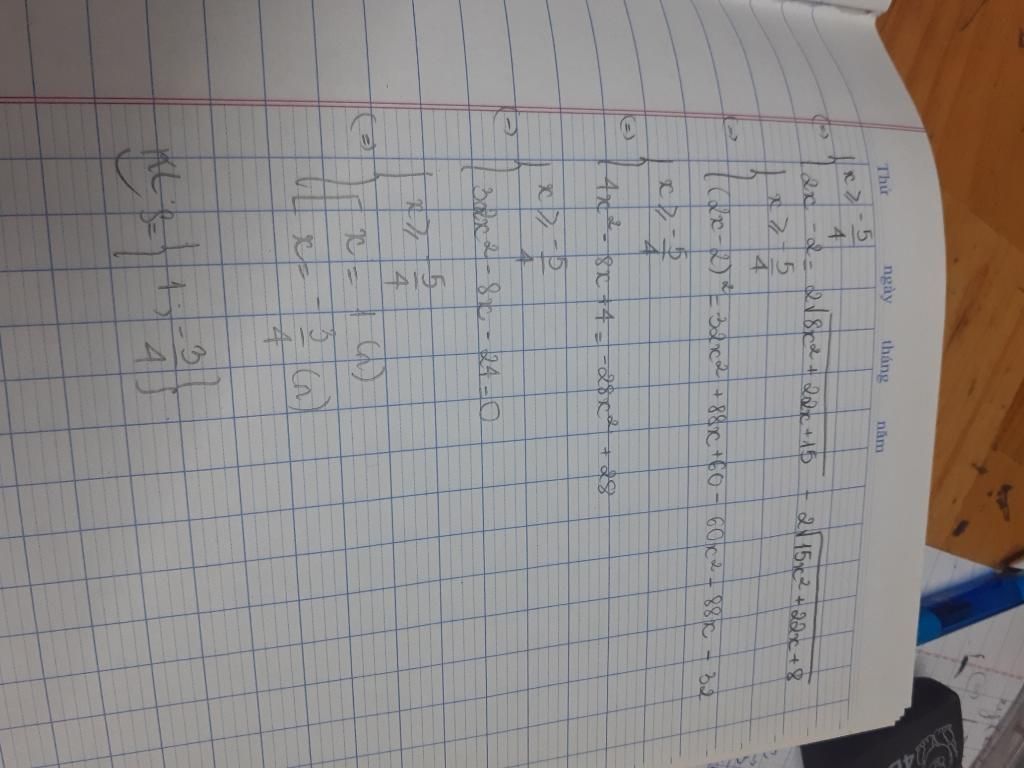 Thứ ngày tháng năm
x ⩾ -5/4
(=) { 2x - 2 = 2√(8x² + 22x + 15) - 2√(15x² + 22x + 8)
x ⩾ -5/4
(=) { (2x - 2)² = 32x² + 88x + 60 - 60x² - 88x - 32
x ⩾ -5/4
(=) { 4x² - 8x + 4 = -28x² + 28
x ⩾ -5/4
(=) { 32x² - 8x - 24 = 0
x ⩾ -5/4
(=) { [ x = 1 (n)
x = -3/4 (n)
KL: S = { 1 ; -3/4 }